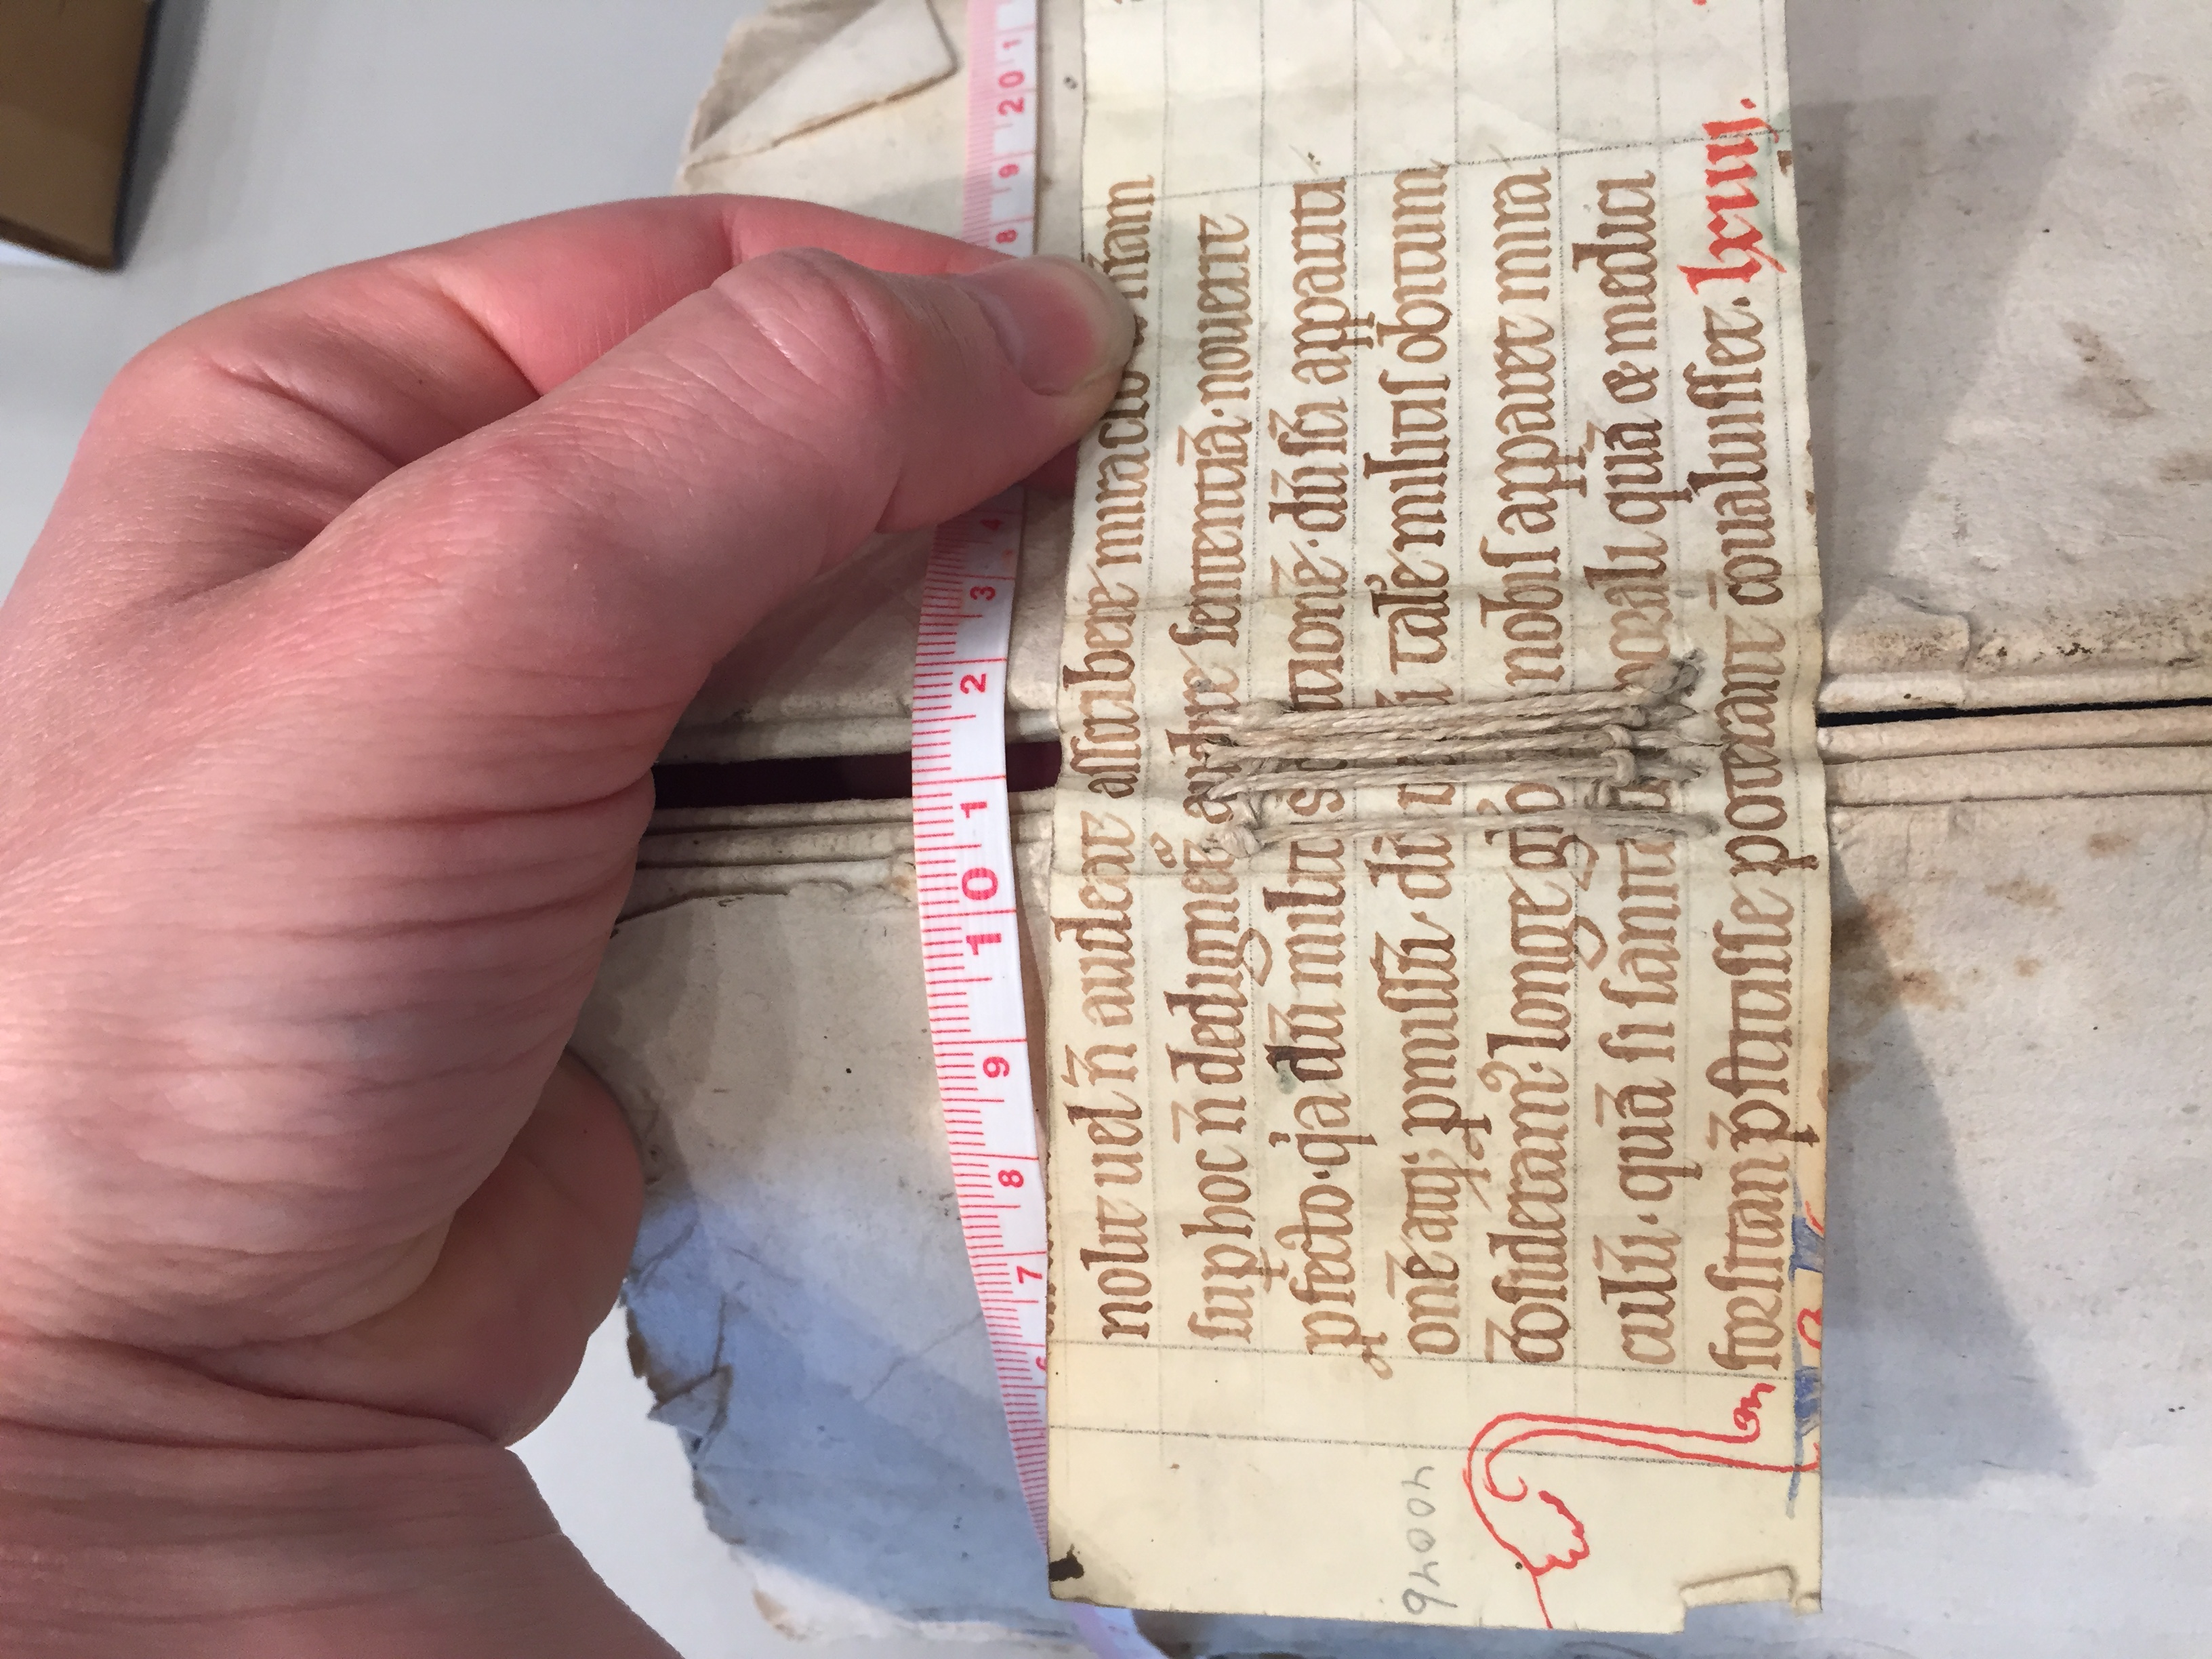 6 7 8 9 10 1 2 3 4 8 9 20 1
nolit uel n̄ audeat asscribere miraclo nr̄am
suꝑ hoc n̄ dedigne&ᷣ audire sententiā · nouerit
ꝓfecto · qͥa dū milit ationē · dū sc̄i appariti
onē atq; ꝓmissū · dū tal̓e militis obitum
c̄osideram᷒ · longe gl̓o nobis apparet mira
culū · quā si sanita porali quā & medici
forsitan p̄stitisse poterant c̄oualuisset · lxiiij.